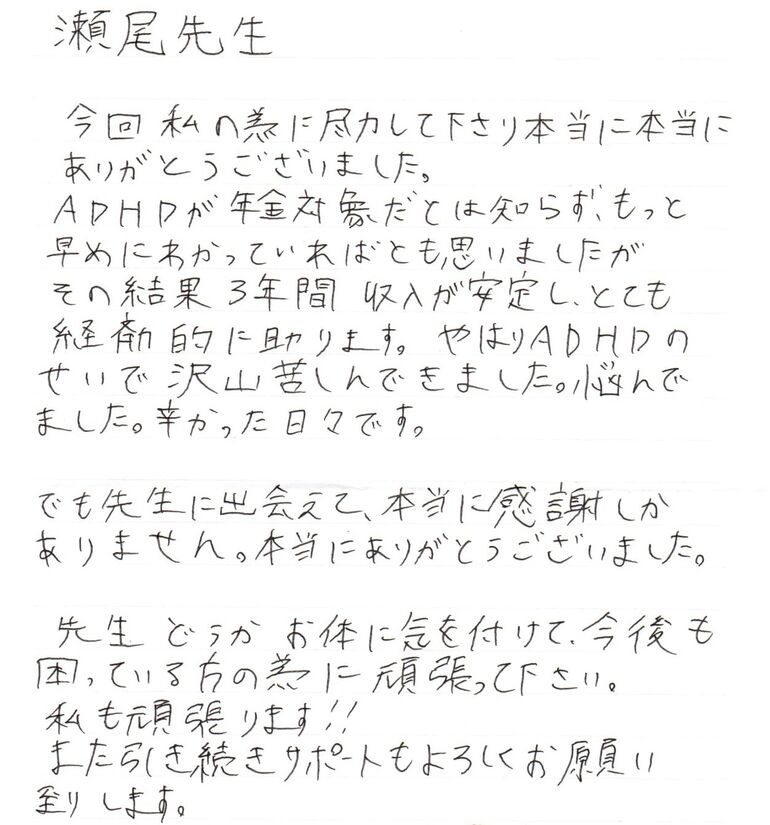 瀬尾先生
今回 私の為に尽力して下さり本当に本当に
ありがとうございました。
ADHDが年金対象だとは知らず、もっと
早めにわかっていればとも思いましたが
その結果 3年間 収入が安定し、とても
経済的に助ります。やはりADHDの
せいで沢山苦しんできました。悩んで
ました。辛かった日々です。
でも先生に出会えて、本当に感謝しか
ありません。本当にありがとうございました。
先生 どうか お体に気を付けて、今後も
困っている方の為に頑張って下さい。
私も頑張ります!!
また引き続きサポートもよろしくお願い
至りします。